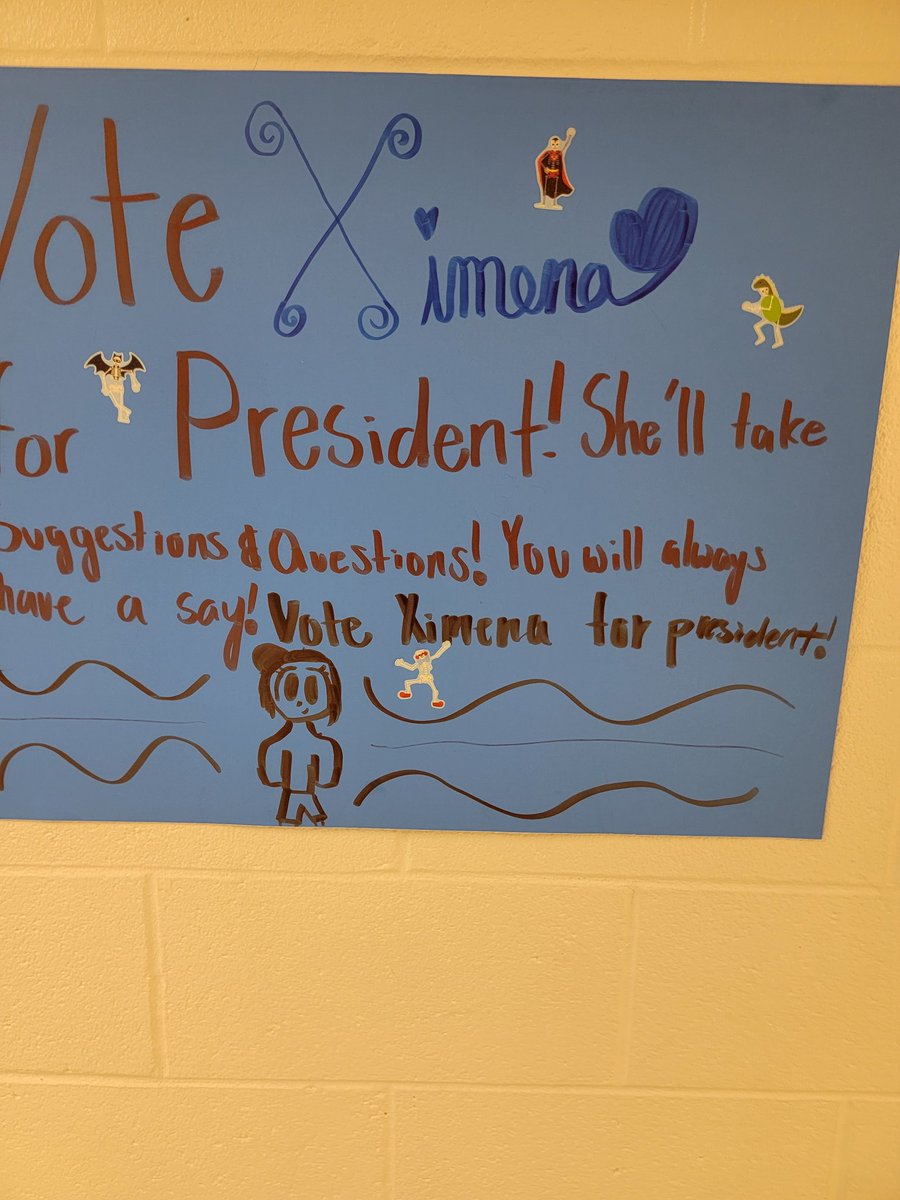 Vote Ximena
for President! She'll take
Suggestions & Questions! You will always
have a say! Vote Ximena for president!